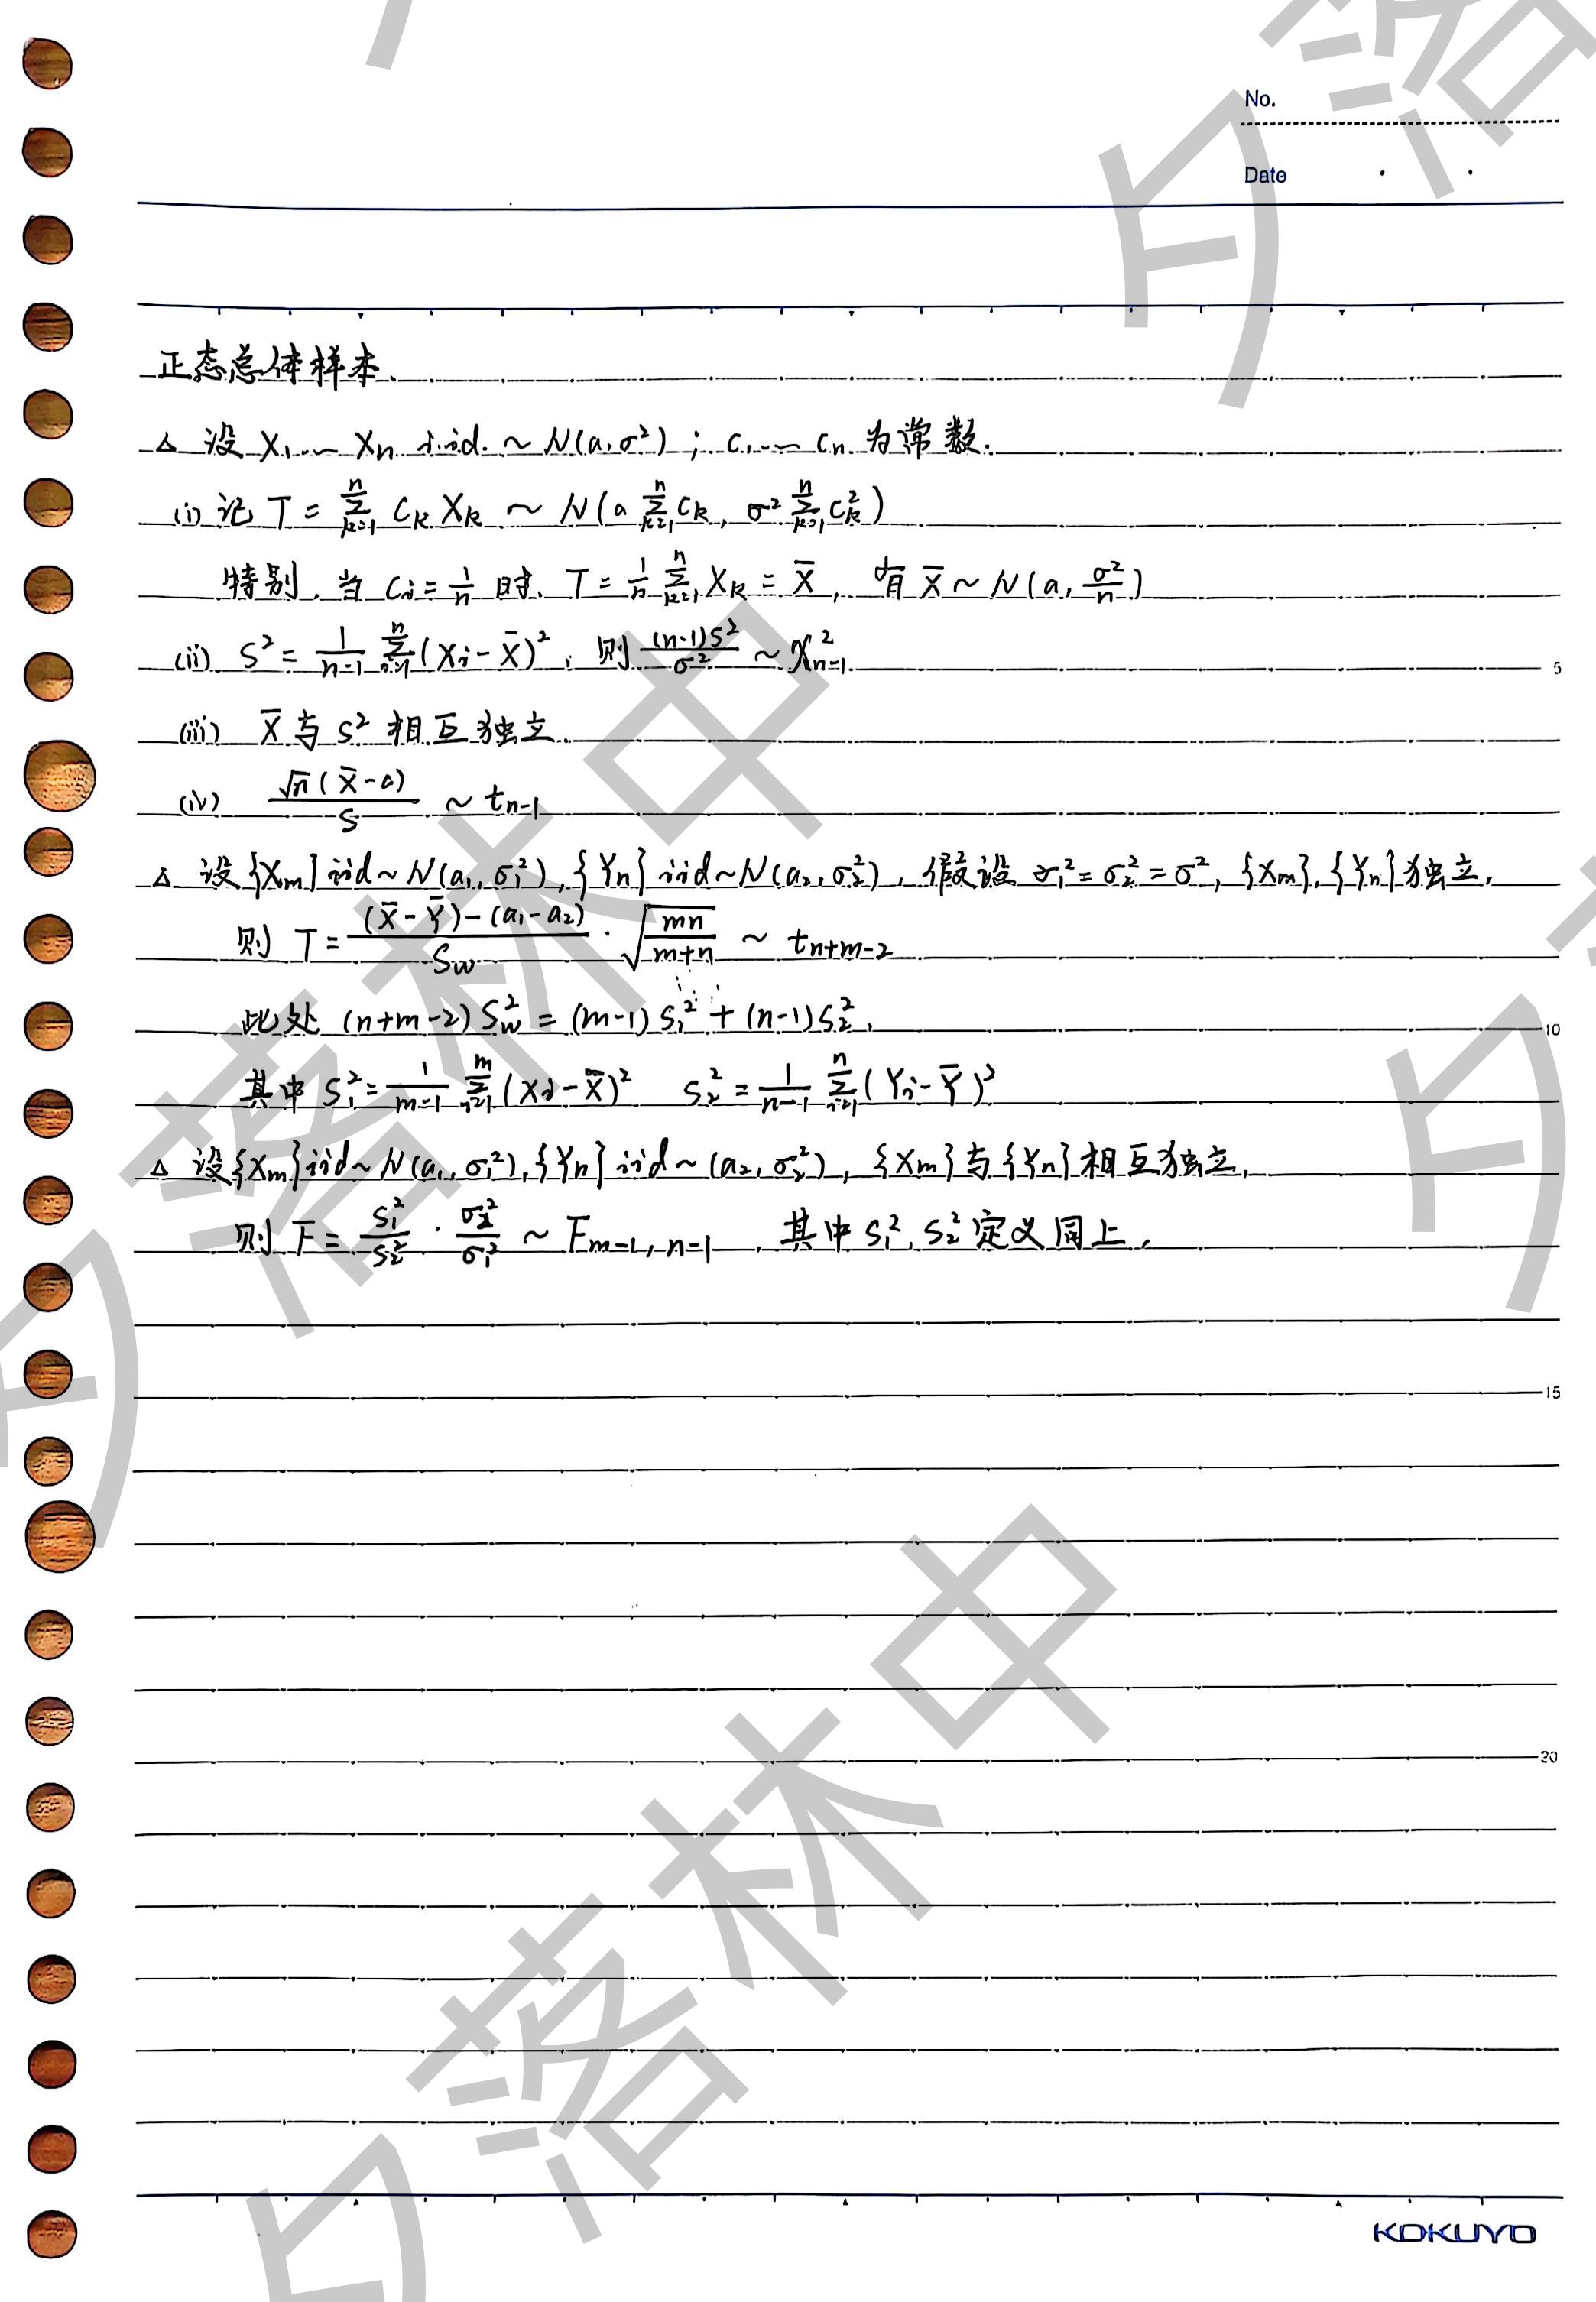 No.
Date
正态总体样本.
△ 设 X₁…Xₙ i.i.d. ~ N(a, σ²) ; c₁…cₙ 为常数.
(i) 记 T = \sum_{k=1}^{n} C_k X_k ~ N(a \sum_{k=1}^{n} C_k, σ² \sum_{k=1}^{n} C_k²)
特别, 当 C_i = \frac{1}{n} 时, T = \frac{1}{n} \sum_{k=1}^{n} X_k = \bar{X}, 有 \bar{X} ~ N(a, \frac{σ²}{n})
(ii) S² = \frac{1}{n-1} \sum_{i=1}^{n} (X_i - \bar{X})², 则 \frac{(n-1)S²}{σ²} ~ χ²_{n-1}
5
(iii) \bar{X} 与 S² 相互独立.
(iv) \frac{\sqrt{n}(\bar{X}-a)}{S} ~ t_{n-1}
△ 设{X_m} iid ~ N(a₁, σ₁²), {Y_n} iid ~ N(a₂, σ₂²), 假设 σ₁² = σ₂² = σ², {X_m}, {Y_n}独立,
则 T = \frac{(\bar{X}-\bar{Y})-(a₁-a₂)}{S_w} · \sqrt{\frac{mn}{m+n}} ~ t_{n+m-2}
此处 (n+m-2) S_w² = (m-1) S₁² + (n-1) S₂²,
10
其中 S₁² = \frac{1}{m-1} \sum_{i=1}^{m} (X_i - \bar{X})² S₂² = \frac{1}{n-1} \sum_{i=1}^{n} (Y_i - \bar{Y})²
△ 设{X_m} iid ~ N(a₁, σ₁²), {Y_n} iid ~ (a₂, σ₂²), {X_m}与{Y_n}相互独立,
则 F = \frac{S₁²}{S₂²} · \frac{σ₂²}{σ₁²} ~ F_{m-1, n-1}, 其中 S₁², S₂² 定义同上.
15
20
KOKUYO
夕落林中
夕落林中
夕落
夕